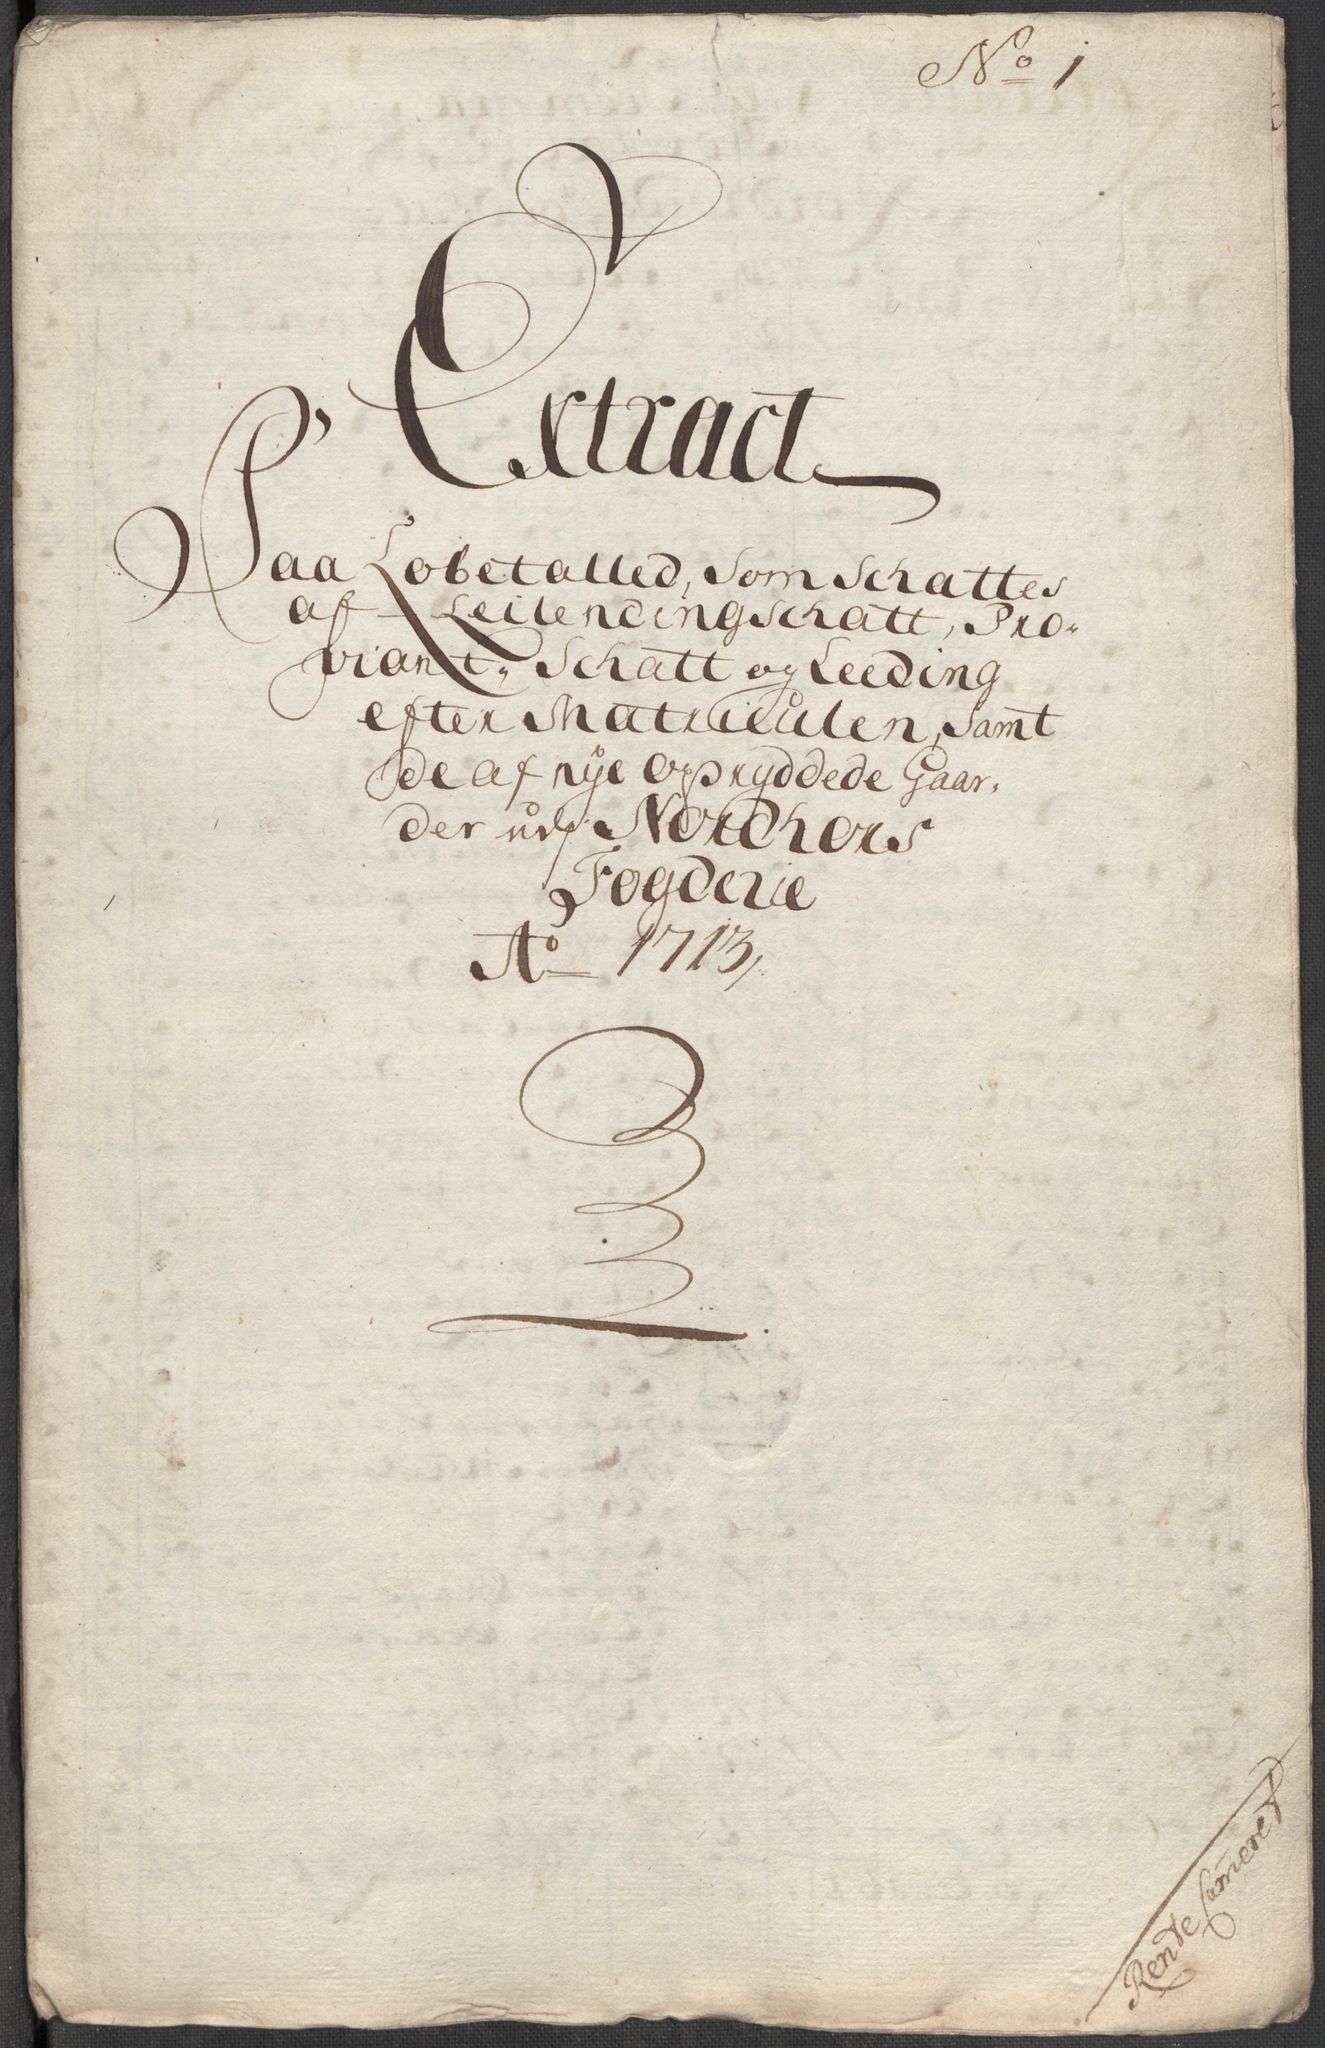 No 1
Extract
Paa Løbetalled, som Schattes
af Leilendingschatt, Pro-
viant-Schatt og Leeding
efter Matriculen, samt
de af nÿe opryddede Gaar-
der udj Nordhors
Fogderie
Ao 1713,
Rente Cameret